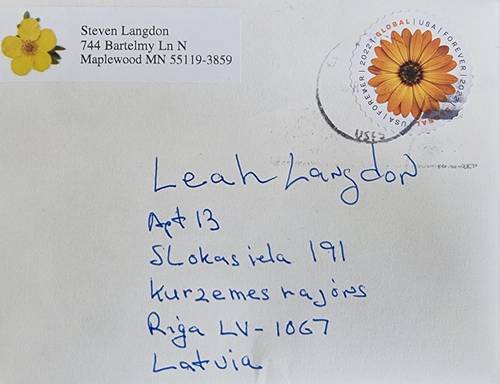 Steven Langdon
744 Bartelmy Ln N
Maplewood MN 55119-3859
GLOBAL | USA | FOREVER | 2022
GLOBAL | USA | FOREVER | 2022
Leah Langdon
Apt 13
SLokas iela 191
Kurzemes rajóns
Riga LV-1067
Latvia